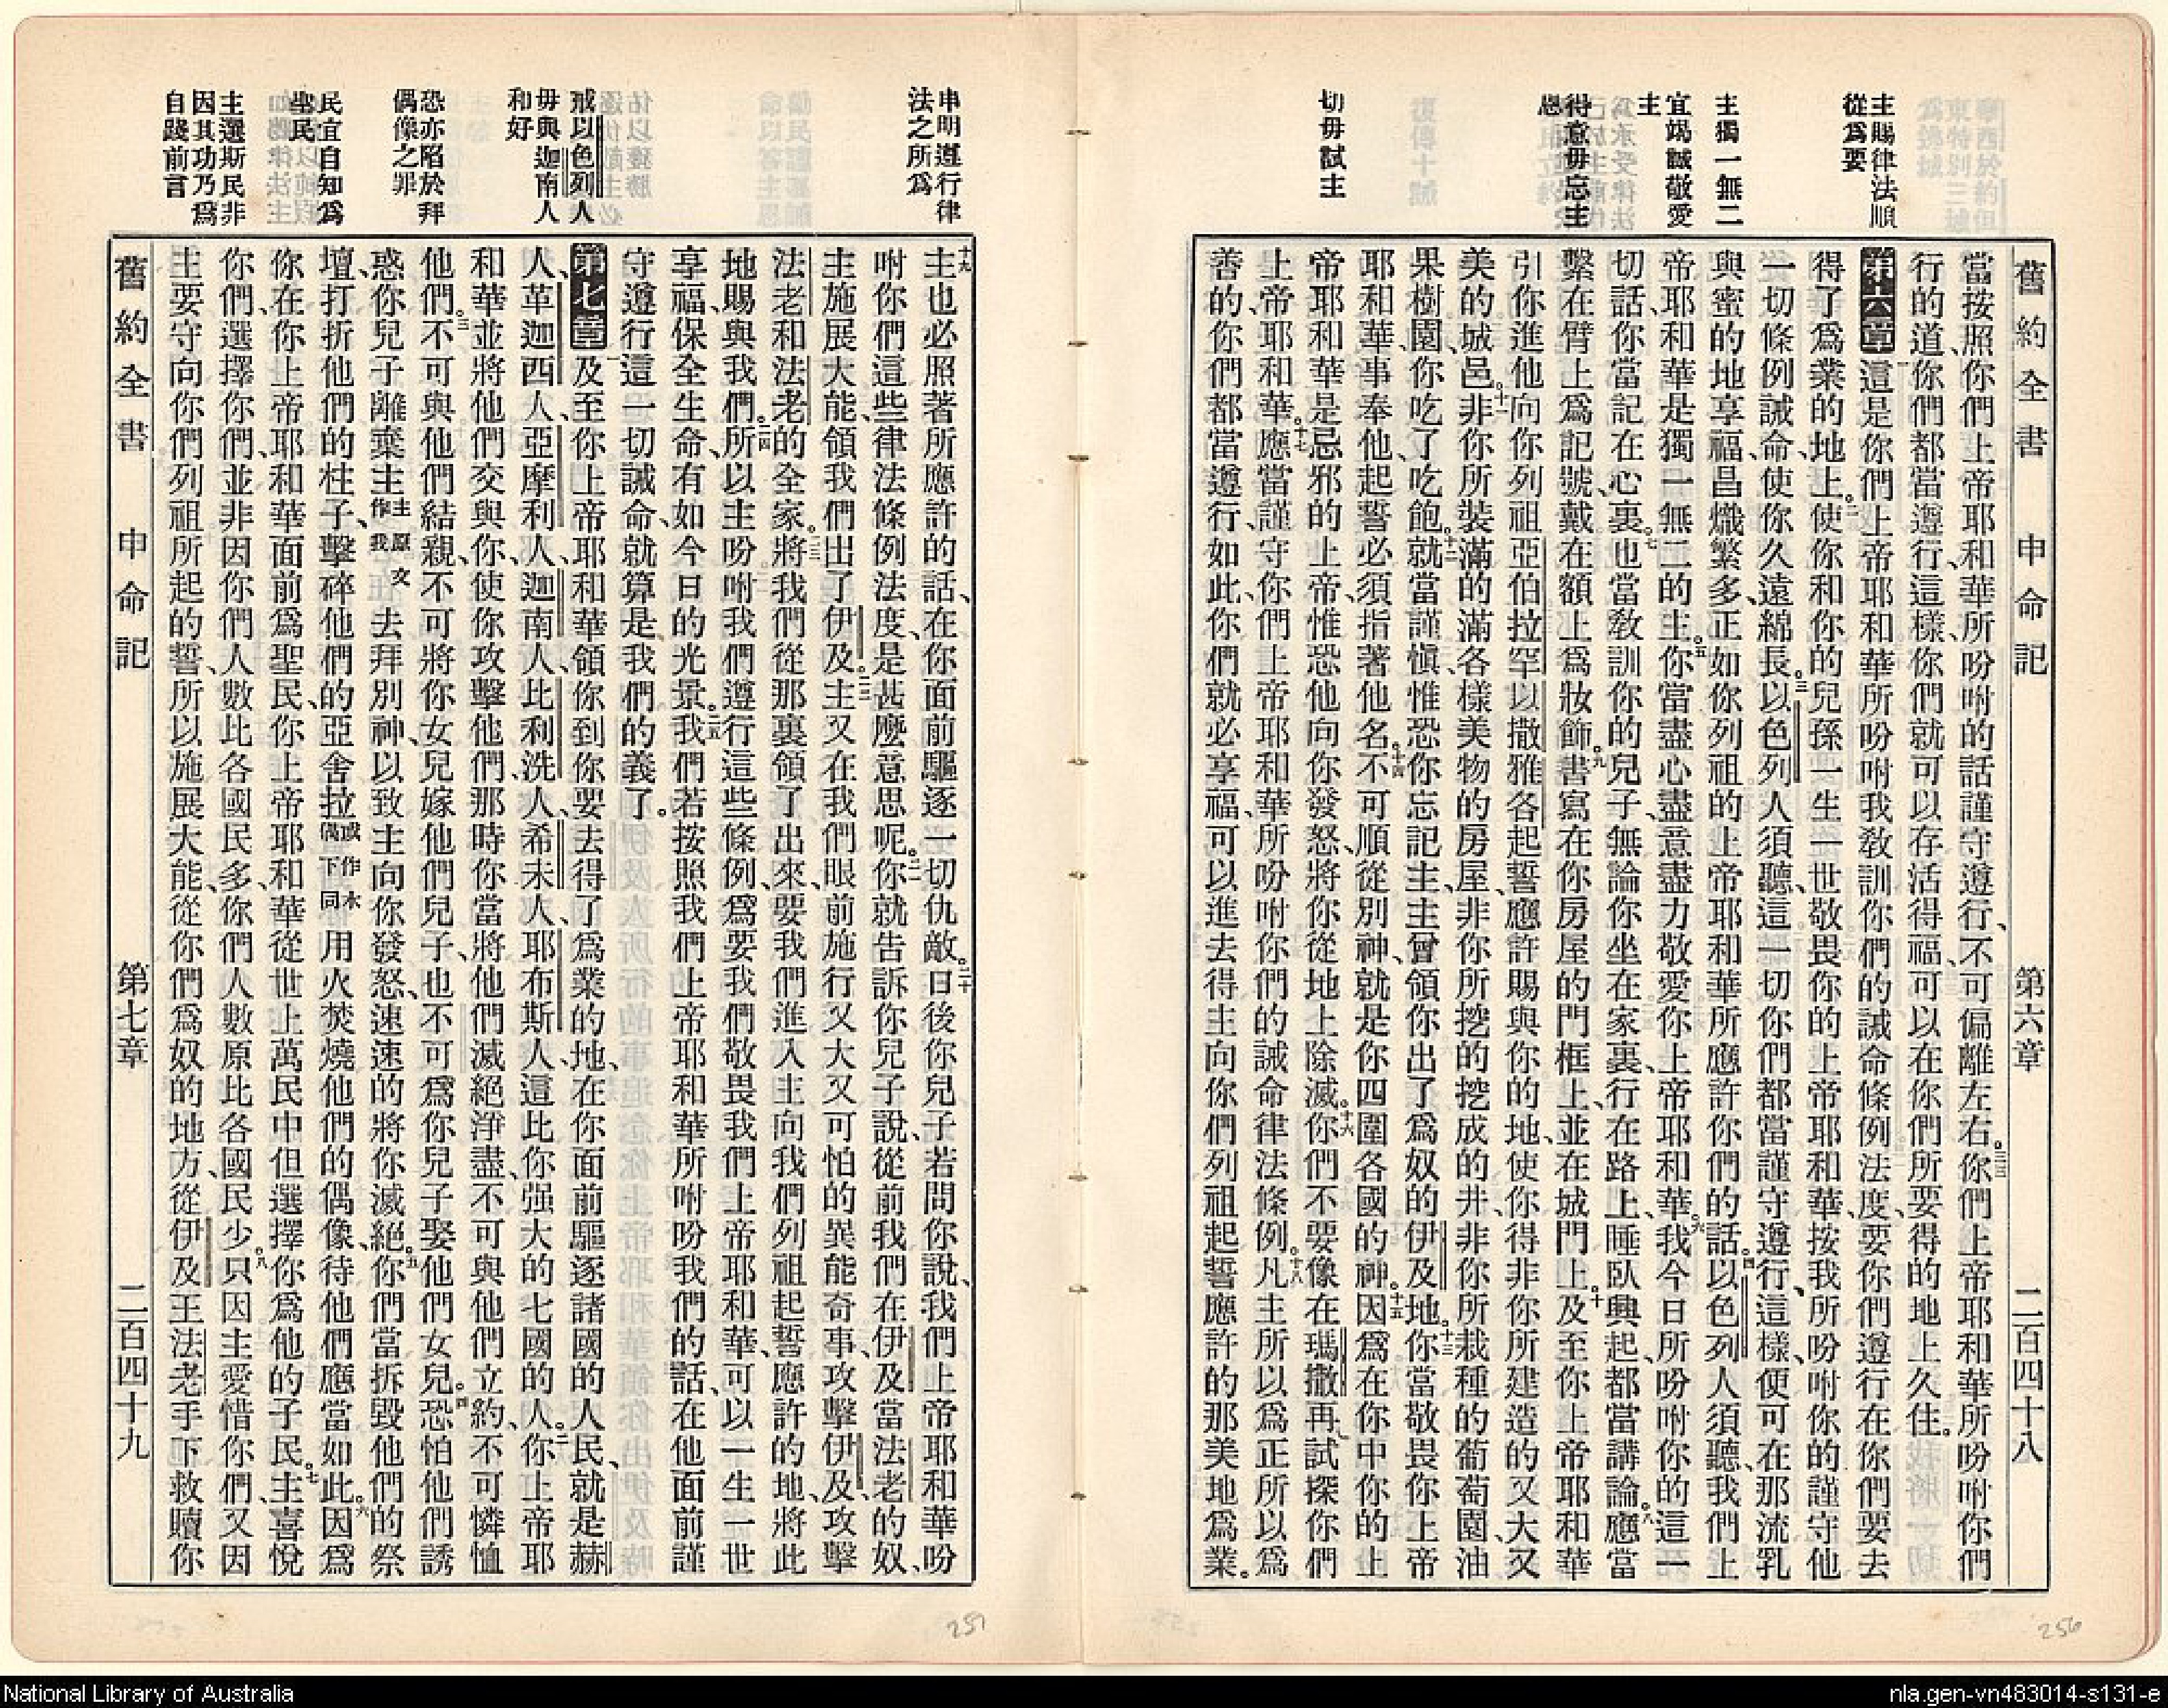 主賜律法順
從爲要
主獨一無二
宜竭誠敬愛
主
得意毋忘主
恩
切毋試主
舊約全書 申命記 第六章 二百四十八
當按照你們上帝耶和華所吩咐的話謹守遵行、不可偏離左右。三三你們上帝耶和華所吩咐你們
行的道、你們都當遵行、這樣、你們就可以存活得福、可以在你們所要得的地上久住。
第六章 一這是你們上帝耶和華所吩咐我教訓你們的誡命條例法度、要你們遵行在你們要去
得了爲業的地上。二使你和你的兒孫、一生一世敬畏你的上帝耶和華、按我所吩咐你的謹守他
一切條例誡命、使你久遠綿長。三以色列人須聽、這一切你們都當謹守遵行、這樣、便可在那流乳
與蜜的地、享福、昌熾繁多、正如你列祖的上帝耶和華所應許你們的話。四以色列人須聽、我們上
帝耶和華是獨一無二的主。五你當盡心盡意盡力敬愛你上帝耶和華。六我今日所吩咐你的這一
切話、你當記在心裏。七也當教訓你的兒子、無論你坐在家裏、行在路上、睡臥興起、都當講論。八應當
繫在臂上爲記號、戴在額上爲妝飾。九書寫在你房屋的門框上、並在城門上。十及至你上帝耶和華
引你進他向你列祖亞伯拉罕以撒雅各起誓、應許賜與你的地、使你得非你所建造的又大又
美的城邑。十一非你所裝滿的滿各樣美物的房屋、非你所挖的挖成的井、非你所栽種的葡萄園、油
果樹園、你吃了吃飽。十二就當謹愼、惟恐你忘記主、主曾領你出了爲奴的伊及地。十三你當敬畏你上帝
耶和華、事奉他、起誓必須指著他名。十四不可順從別神、就是你四圍各國的神。十五因爲在你中你的上
帝耶和華是忌邪的上帝、惟恐他向你發怒、將你從地上除滅。十六你們不要像在瑪撒再試探你們
上帝耶和華。十七應當謹守你們上帝耶和華所吩咐你們的誡命律法條例。十八凡主所以爲正所以爲
善的、你們都當遵行、如此、你們就必享福、可以進去得主向你們列祖起誓應許的那美地爲業。
申明遵行律
法之所爲
戒以色列人
毋與迦南人
和好
恐亦陷於拜
偶像之罪
民宜自知爲
聖民
主選斯民非
因其功乃爲
自踐前言
十九主也必照著所應許的話、在你面前驅逐一切仇敵。二十日後你兒子若問你說、我們上帝耶和華吩
咐你們這些律法條例法度、是甚麽意思呢。二一你就吿訴你兒子說、從前我們在伊及當法老的奴、
主施展大能、領我們出了伊及。二二主又在我們眼前、施行又大又可怕的異能奇事、攻擊伊及、攻擊
法老、和法老的全家。二三將我們從那裏領了出來、要我們進入主向我們列祖起誓應許的地、將此
地賜與我們。二四所以主吩咐我們遵行這些條例、爲要我們敬畏我們上帝耶和華、可以一生一世
享福、保全生命、有如今日的光景。二五我們若按照我們上帝耶和華所咐吩我們的話、在他面前謹
守遵行這一切誡命、就算是我們的義了。
第七章 一及至你上帝耶和華領你到你要去得了爲業的地、在你面前驅逐諸國的人民、就是赫
人、革迦西人、亞摩利人、迦南人、比利洗人、希未人、耶布斯人、這比你强大的七國的人。二你上帝耶
和華並將他們交與你、使你攻擊他們、那時你當將他們滅絕淨盡、不可與他們立約、不可憐恤
他們。三不可與他們結親、不可將你女兒嫁他們兒子、也不可爲你兒子娶他們女兒。四恐怕他們誘
惑你兒子離棄主主原文作我去拜別神、以致主向你發怒、速速的將你滅絕。五你們當拆毀他們的祭
壇、打折他們的柱子、擊碎他們的亞舍拉或作木偶下同用火焚燒他們的偶像、待他們應當如此。六因爲
你在你上帝耶和華面前爲聖民、你上帝耶和華從世上萬民中但選擇你爲他的子民。七主喜悅
你們、選擇你們、並非因你們人數比各國民多、你們人數原比各國民少。八只因主愛惜你們、又因
主要守向你們列祖所起的誓、所以施展大能、從你們爲奴的地方、從伊及王法老手下救贖你
舊約全書 申命記 第七章 二百四十九
257
256
National Library of Australia
nla.gen-vn483014-s131-e